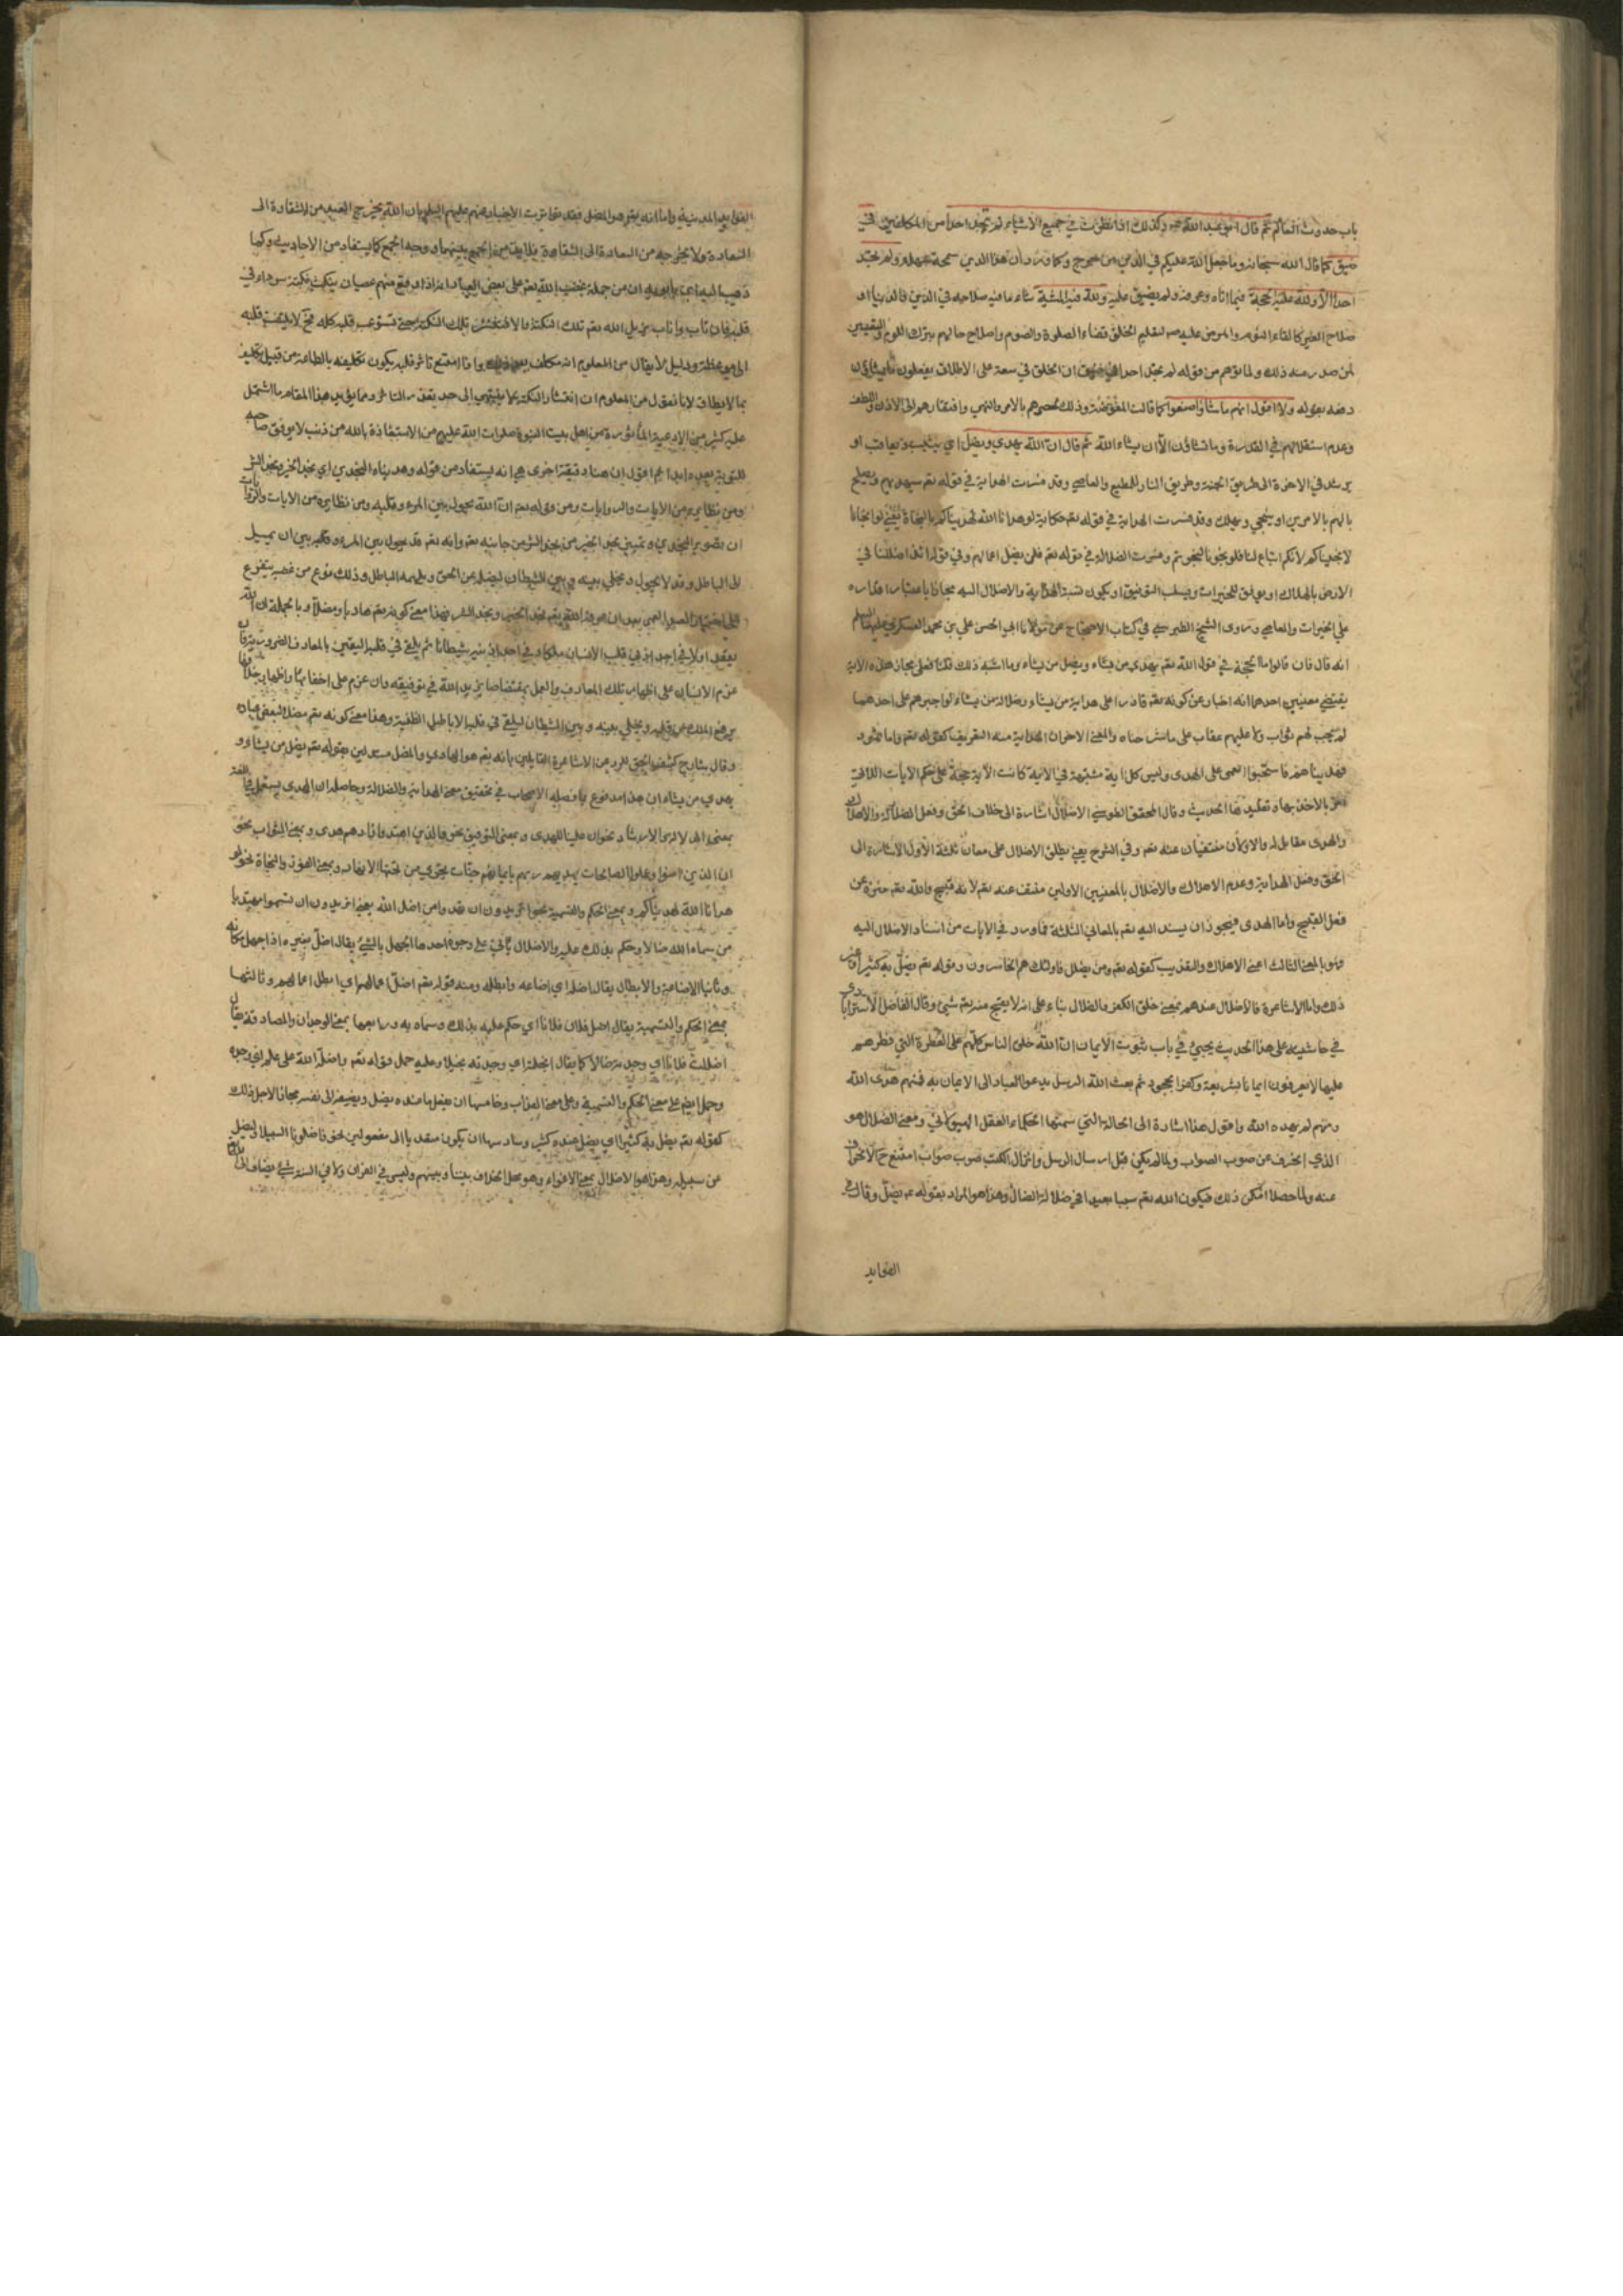 باب حدوث العالم ثم قال ابو عبد الله وكذلك اذا نظرت في جميع الاشياء لم تجد احدا من المكلفين في
ضيق كما قال الله سبحانه وما جعل الله عليكم في الدين من حرج وكما ورد ان هذا الدين سمحة سهلة ولم تجد
احدا الا ولله عليه حجة فيما اتاه وعرفه ولم يضيق عليه ولله فيه المشية بناء ما فيه صلاحه في الدين والدنيا او
صلاح الغير كالقاء النوم والمرض عليه لتعليم الخلق قضاء الصلوة والصوم واصلاح حالهم بترك اللوم والتعيير
لمن صدر منه ذلك ولما توهم من قوله لم تجد احدا في ضيق ان الخلق في سعة على الاطلاق يفعلون ما يشاؤن
دفعه بقوله ولا اقول انهم ما شاؤا صنعوا كما قالت المفوضة وذلك لحصرهم بالامر والنهي وافتقارهم الى الاذن واللطف
وعدم استقلالهم في القدرة وما تشاؤن الا ان يشاء الله ثم قال ان الله يهدي ويضل اي يثيب ويعاقب او
يرشد في الاخرة الى طريق الجنة وطريق النار للمطيع والعاصي وقد فسرت الهداية في قوله تعم سيهديهم ويصلح
بالهم بالامرين او ينجي ويهلك وقد فسرت الهداية في قوله تعم حكاية لو هدانا الله لهديناكم بالنجاة يعني لو انجانا
لانجيناكم لانكم اتباع لنا فلو نجونا لنجوتم وفسرت الضلالة في قوله تعم فلن يضل اعمالهم وفي قوله ائذا ضللنا في
الارض بالهلاك او يوفق للخيرات ويسلب التوفيق او يكون نسبة الهداية والاضلال اليه مجازا باعتبار اقداره
على الخيرات والمعاصي وروى الشيخ الطبرسي في كتاب الاحتجاج عن مولانا ابي الحسن علي بن محمد العسكري عليهما السلم
انه قال فان قالوا ما الحجة في قول الله تعم يهدي من يشاء ويضل من يشاء وما اشبه ذلك قلنا فعلى مجاز هذه الاية
يقتضي معنيين احدهما انه اخبار عن كونه تعم قادرا على هداية من يشاء وضلالة من يشاء لو اجبرهم على احدهما
لم يجب لهم ثواب ولا عليهم عقاب على ما شرحناه والمعنى الاخر ان الهداية منه التعريف كقوله تعم واما ثمود
فهديناهم فاستحبوا العمى على الهدى وليس كل اية مشتبهة في الاية كانت الاية حجة على حكم الايات اللاتي
امر بالاخذ بها وتقليدها الحديث وقال المحقق الطوسي الاضلال اشارة الى خلاف الحق وفعل الضلالة والاهلاك
والهدى مقابل له والاولان منتفيان عنه تعم وفي الشرح يعني يطلق الاضلال على معان ثلثة الاول الاشارة الى
الحق وفعل الهداية وعدم الاهلاك والاضلال بالمعنيين الاولين منتف عنه تعم لانه قبيح والله تعم منزه عن
فعل القبيح واما الهدى فيجوز ان يسند اليه تعم بالمعاني الثلثة فما ورد في الايات من اسناد الاضلال اليه
فهو بالمعنى الثالث اعني الاهلاك والتعذيب كقوله تعم ومن يضلل فاولئك هم الخاسرون وقوله تعم يضل به كثيرا وغير
ذلك واما الاشاعرة فالاضلال عندهم بمعنى خلق الكفر والضلال بناء على انه لا يقبح منه تعم شيئ وقال الفاضل الاسترابادي
في حاشيته على هذا الحديث يجيئ في باب ثبوت الايمان ان الله خلق الناس كلهم على الفطرة التي فطرهم
عليها لا يعرفون ايمانا بشريعة وكفرا بجحود ثم بعث الله الرسل يدعوا العباد الى الايمان به فمنهم هدى الله
ومنهم لم يهده الله واقول هذا اشارة الى الحالة التي سمتها الحكماء العقل الهيولاني ومعنى الضلال هو
الذي انحرف عن صوب الصواب ولما لم يكن قبل ارسال الرسل وانزال الكتب صوب صواب امتنع ح الانحراف
عنه ولما حصلا امكن ذلك فيكون الله تعم سببا بعيدا في ضلالة الضال وهذا هو المراد بقوله ع يضل وقال في
الفوايد
الفوايد المدنية واما انه تعم هو المضل فقد تواترت الاخبار عنهم عليهم السلم بان الله يخرج العبد من الشقاوة الى
السعادة ولا يخرجه من السعادة الى الشقاوة فلا بد من الجمع بينهما ووجه الجمع كما يستفاد من الاحاديث وكما
ذهب اليه ابن بابويه ان من جملة غضب الله تعم على بعض العباد انه اذا وقع منهم عصيان ينكت نكتة سوداء في
قلبه فان تاب واناب يزيل الله تعم تلك النكتة والا فتنتشر تلك النكتة حتى تستوعب قلبه كله فح لا يلتفت قلبه
الى موعظة ودليل لا يقال من المعلوم انه مكلف بعد ذلك واذا امتنع تاثر قلبه يكون تكليفه بالطاعة من قبيل تكليف
بما لا يطاق لانا نقول من المعلوم ان انتشار النكتة لا ينتهي الى حد تعذر التاثر ومما يؤيد هذا المقام ما اشتمل
عليه كثير من الادعية الماثورة عن اهل بيت النبوة صلوات الله عليهم من الاستعاذة بالله من ذنب لا يوفق صاحبه
للتوبة بعده ابدا ثم اقول ان هنا دقيقة اخرى هي انه يستفاد من قوله وهديناه النجدين اي نجد الخير ونجد الشر
ومن نظايره من الايات والروايات ومن قوله تعم ان الله يحول بين المرء وقلبه ومن نظايره من الايات والروايات
ان تصوير النجدين وتمييز نجد الخير من نجد الشر من جانبه تعم وانه تعم قد يحول بين المرء وقلبه بين ان يميل
الى الباطل وقد لا يحول ويخلي بينه وبين الشيطان ليضله عن الحق ويلهمه الباطل وذلك نوع من غضبه يتفرع
على اختيار العبد العمى بعد ان عرفه الله تعم نجد الخير ونجد الشر فهذا معنى كونه تعم هاديا ومضلا وبالجملة ان الله
يقعد اولا في احد اذني قلب الانسان ملكا وفي احد اذنيه شيطانا ثم يلقي في قلبه اليقين بالمعارف الضرورية فان
عزم الانسان على اظهار تلك المعارف والعمل بمقتضاها يزيد الله في توفيقه وان عزم على اخفائها واظهار خلافها
يرفع الملك عن قلبه ويخلي بينه وبين الشيطان ليلقي في قلبه الاباطيل الظنية وهذا معنى كونه تعم مضلا لبعض عباده
وقال شارح كشف الحق للرد عن الاشاعرة القايلين بانه تعم هو الهادي والمضل مستدلين بقوله تعم يضل من يشاء و
يهدي من يشاء ان هذا مدفوع بما فصله الاصحاب في تحقيق معنى الهداية والضلالة وحاصله ان الهدى يستعمل في اللغة
بمعنى الدلالة والارشاد نحو ان علينا للهدى وبمعنى التوفيق نحو والذين اهتدوا زادهم هدى وبمعنى الثواب نحو
ان الذين امنوا وعملوا الصالحات يهديهم ربهم بايمانهم جنات تجري من تحتها الانهار وبمعنى الفوز والنجاة نحو لو
هدانا الله لهديناكم وبمعنى الحكم والتسمية نحو اتريدون ان تهدوا من اضل الله يعني اتريدون ان تسموا مهتديا
من سماه الله ضالا وحكم بذلك عليه والاضلال ياتي على وجوه احدها الجهل بالشيئ يقال اضل بعيره اذا جهل مكانه
وثانيها الاضاعة والابطال يقال اضله اي اضاعه وابطله ومنه قوله تعم اضل اعمالهم اي ابطل اعمالهم وثالثها
بمعنى الحكم والتسمية يقال اضل فلان فلانا اي حكم عليه بذلك وسماه به ورابعها بمعنى الوجدان والمصادفة يقال
اضللت فلانا اي وجدته ضالا كما يقال ابخلته اي وجدته بخيلا وعليه حمل قوله تعم واضله الله على علم اي وجده
وحمل ايضا على معنى الحكم والتسمية وعلى معنى العذاب وخامسها ان يفعل ما عنده يضل ويضيفه الى نفسه مجازا لاجل ذلك
كقوله تعم يضل به كثيرا اي يضل عنده كثير وسادسها ان يكون متعديا الى مفعولين نحو فاضلونا السبيلا ليضل
عن سبيله وهذا هو الاضلال بمعنى الاغواء وهو محل الخلاف بيننا وبينهم وليس في القران ولا في السنة شيئ يضاف الى الله